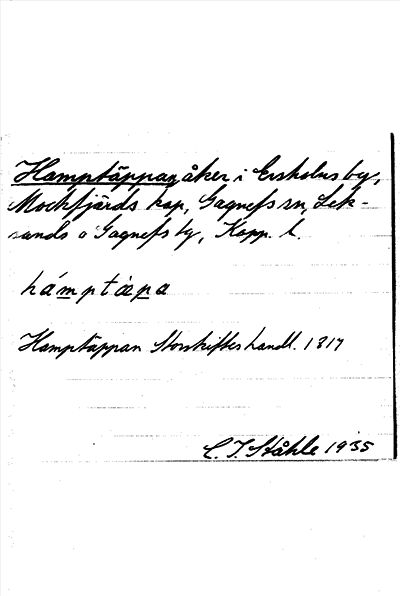 Hamptäppan, åker i Ersholns by,
Mockfjärds kap, Gagnefs sn, Lek-
sands o Gagnefs tg, Kopp. l.
hámptàpa
Hamptäppan Storskifteshandl. 1817
C. I. Ståhle 1935